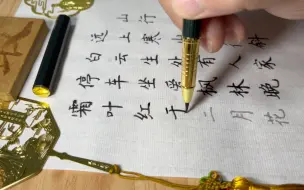 山行
远上寒山斜
白云生处有人家
停车坐爱枫林晚
霜叶红于二月花